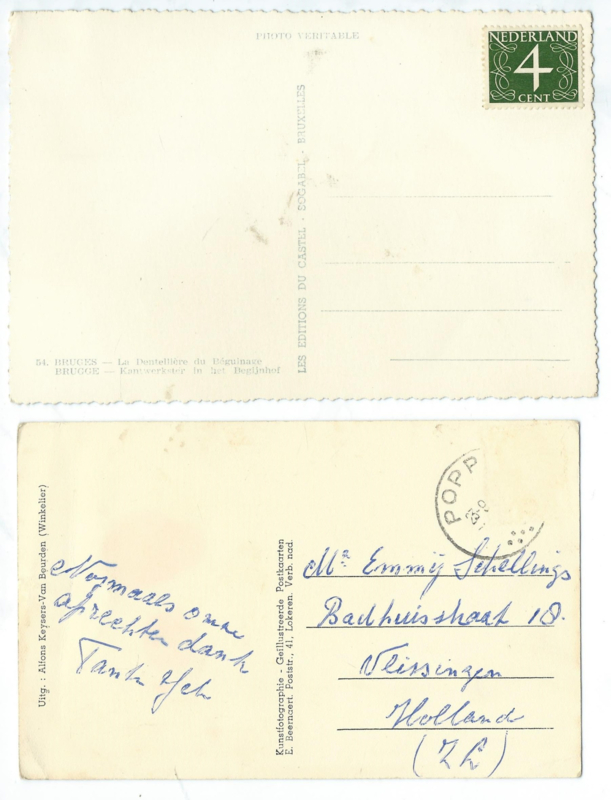 PHOTO VERITABLE
NEDERLAND
4
CENT
LES EDITIONS DU CASTEL - SOGABEL - BRUXELLES
54. BRUGES — La Dentellière du Béguinage
BRUGGE — Kantwerkster in het Begijnhof
POPP
Uitg. : Alfons Keysers-Van Beurden (Winkelier)
Nogmaals onze
oprechten dank
Kunstfotographie - Geïllustreerde Postkaarten
E. Beernaert. Poststr., 41, Lokeren. Verb. nad.
Ma Emmy Schellings
Badhuisstraat 18.
Vlissingen
Holland
(ZL)